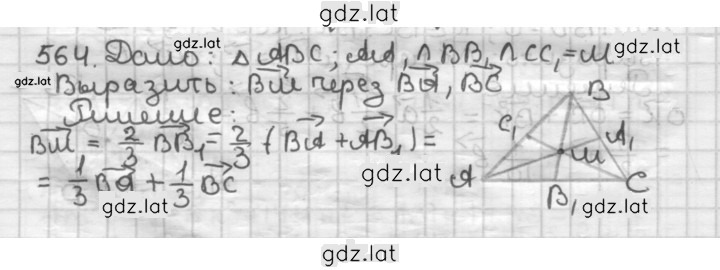 gdz.lat
564. Дано: △ ABC; AA₁ ∩ BB₁ ∩ CC₁ = M.
gdz.lat
gdz.lat
Выразить: BM через BA, BC
Решение:
BM = 2/3 BB₁ = 2/3 (BA + AB₁) =
= 1/3 BA + 1/3 BC
gdz.lat
gdz.lat
B
C₁ A₁
M
A C
B₁
gdz.lat